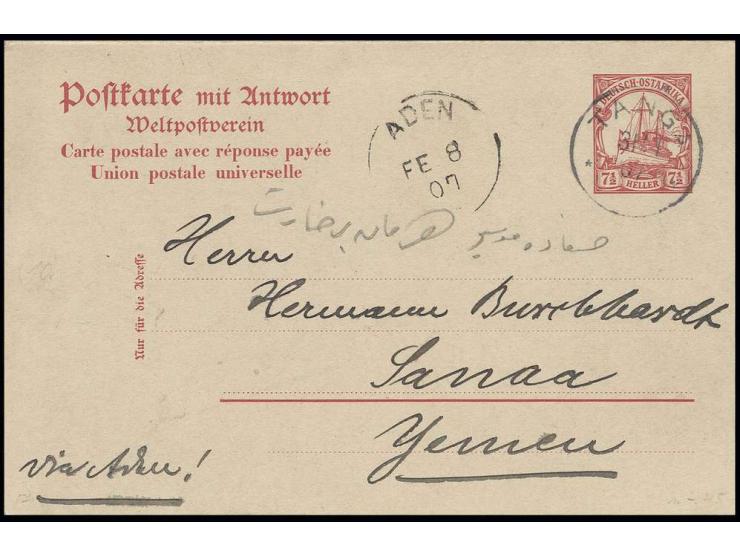 Postkarte mit Antwort
Weltpostverein
Carte postale avec réponse payée
Union postale universelle
ADEN
FE 8
07
DEUTSCH-OSTAFRIKA
7½ HELLER 7½
TANGA
صنعاده
Nur für die Adresse
Herrn
Hermann Burchhardt
Sanaa
Yemen
via Aden!